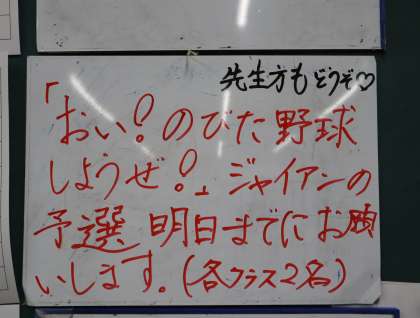 先生方もどうぞ♡
「おい!のびた野球
しようぜ!」ジャイアンの
予選 明日までにお願
いします。(各クラス2名)